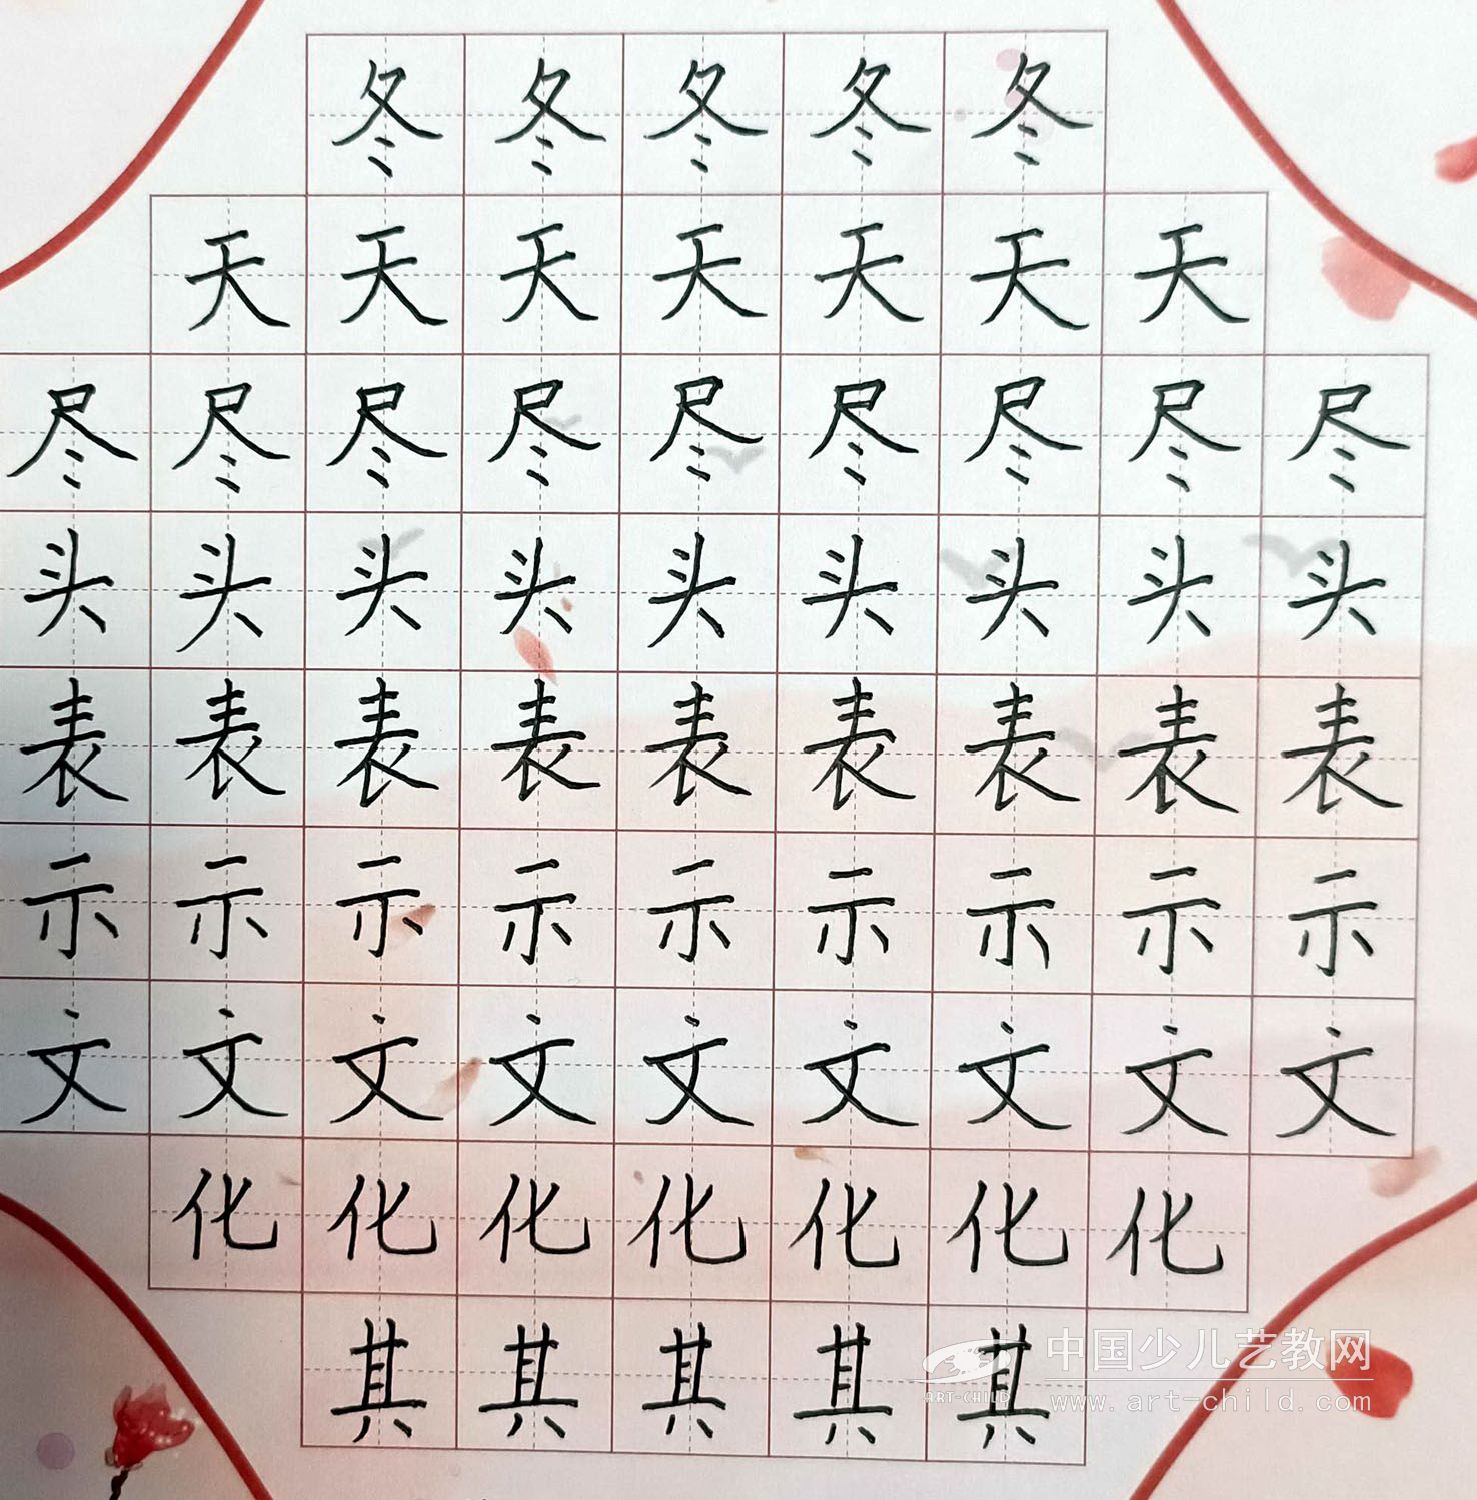 冬冬冬冬冬
天天天天天天天
尽尽尽尽尽尽尽尽尽
头头头头头头头头头
表表表表表表表表表
示示示示示示示示示
文文文文文文文文文
化化化化化化化
其其其其其
中国少儿艺教网
ART-CHILD
www.art-child.com